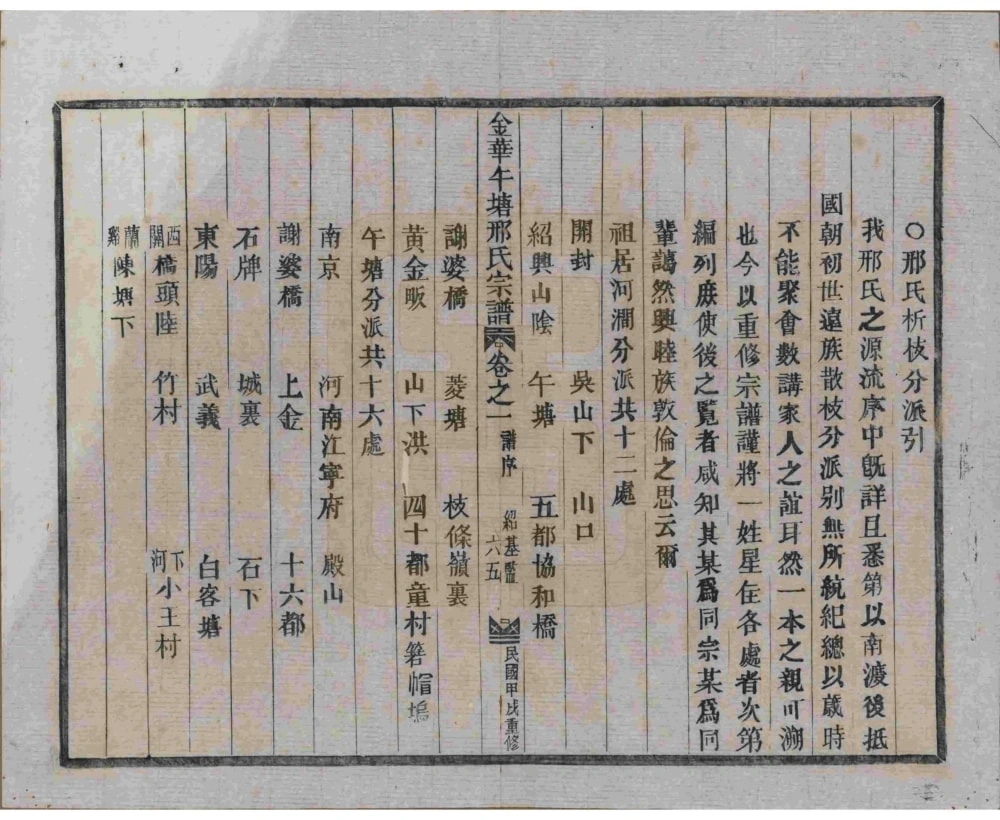 ○邢氏析枝分派引
我邢氏之源流序中旣詳且悉第以南渡後抵
國朝初世遠族散枝分派別無所統紀總以歲時
不能聚會數講家人之誼耳然一本之親可溯
也今以重修宗譜謹將一姓星居各處者次第
編列庶使後之覽者咸知其某爲同宗某爲同
輩藹然興睦族敦倫之思云爾
祖居河澗分派共十二處
開封 吳山下 山口
紹興山陰 午塘 五都協和橋
金華午塘邢氏宗譜 卷之一 譜序 紹基監 六五 民國甲戌重修
謝婆橋 菱塘 枝條嶺裏
黃金畈 山下洪 四十都童村箬帽塢
午塘分派共十六處
南京 河南江寧府 殿山
謝婆橋 上金 十六都
石牌 城裏 石下
東陽 武義 白客塘
西關橋頭陸 竹村 下河小王村
蘭谿陳塸下